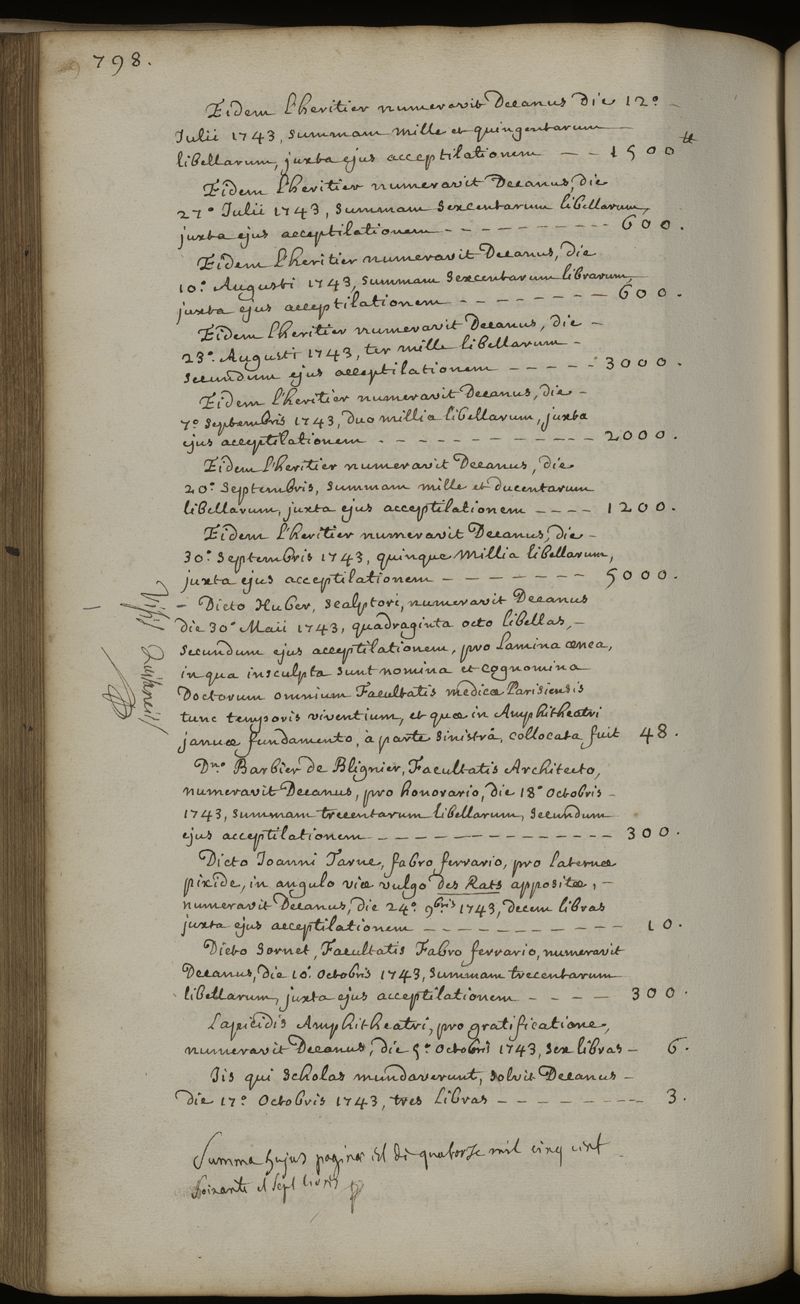 798.
Eidem l'heritier numeravit Decanus die 12°
Julii 1743, summam mille et quingentarum
libellarum, juxta ejus acceptilationem — — 1500 ₶
Eidem l'heritier numeravit Decanus, die
27° Julii 1743, summam sexcentarum libellarum,
juxta ejus acceptilationem - - - - - - - - - 600.
Eidem l'heritier numeravit Decanus, die
10° Augusti 1743, summam sexcentarum librarum,
juxta ejus acceptilationem - - - - - - - - 600.
Eidem l'heritier numeravit Decanus, die -
23° Augusti 1743, ter mille libellarum -
secundum ejus acceptilationem - - - - - 3000.
Eidem l'heritier numeravit Decanus, die -
7° Septembris 1743, duo millia libellarum, juxta
ejus acceptilationem - - - - - - - - - - - 2000.
Eidem l'heritier numeravit Decanus, die
20° Septembris, summam mille et ducentarum
libellarum, juxta ejus acceptilationem - - - - 1200.
Eidem l'heritier numeravit Decanus, die -
30° Septembris 1743, quinque millia libellarum,
juxta ejus acceptilationem - - - - - - - 5000.
- Dicto Huber, scalptori, numeravit Decanus
die 30° Maii 1743, quadraginta octo libellas, -
secundum ejus acceptilationem, pro lamina ænea,
in qua insculpta sunt nomina et cognomina
Doctorum omnium Facultatis medicæ Parisiensis
tunc temporis viventium, et quæ in Amphitheatri
januæ fundamento, à parte sinistrâ, collocata fuit 48.
Dno Barbier de Blignier, Facultatis Architecto,
numeravit Decanus, pro honorario, die 18° Octobris -
1743, summam trecentarum libellarum, secundum
ejus acceptilationem - - - - - - - - - - - - 300.
Dicto Joanni Tarne, fabro ferrario, pro laternæ
pixide, in angulo viæ vulgo des Rats appositæ, -
numeravit Decanus, die 24° 9bris 1743, decem libras
juxta ejus acceptilationem - - - - - - - - - - 10.
Dicto Sornet, Facultatis Fabro ferrario, numeravit
Decanus, die 10° Octobris 1743, summam trecentarum
libellarum, juxta ejus acceptilationem - - - - 300.
Lapicidis Amphitheatri, pro gratificatione,
numeravit Decanus, die 5° Octobris 1743, sex libras - 6.
Iis qui Scholas mundaverunt, solvit Decanus -
die 17° Octobris 1743, tres libras - - - - - - - 3.
Summa hujus paginæ est de quatorse mil cinq cent
soixante et sept livres